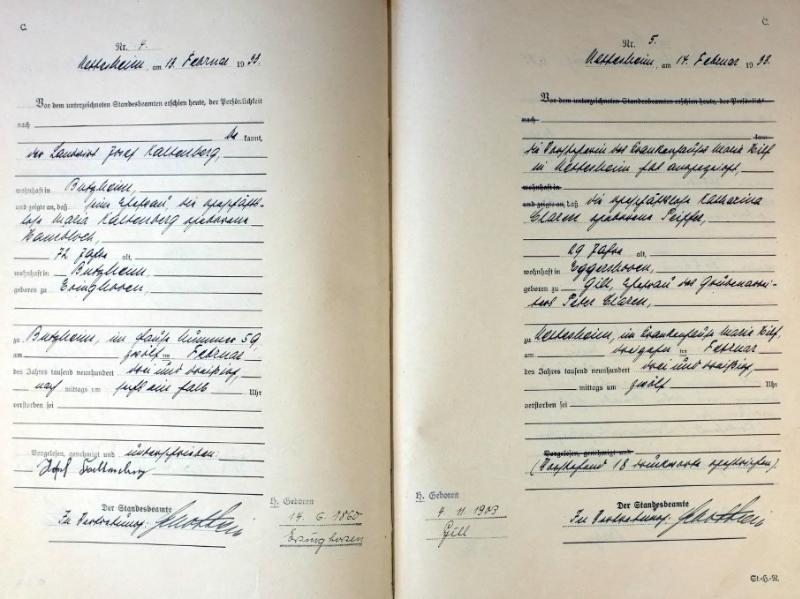 C.
Nr. 4.
Nettesheim, am 13. Februar 1933.
Vor dem unterzeichneten Standesbeamten erschien heute, der Persönlichkeit
nach
be kannt,
der Landwirt Josef Kaltenberg,
wohnhaft in Butzheim,
und zeigte an, daß seine Ehefrau die geschäfts-
lose Maria Kaltenberg geborene
72 Jahre alt,
wohnhaft in Butzheim,
geboren zu
zu Butzheim, im Hause Nummer 59,
am zwölften Februar
des Jahres tausend neunhundert drei und dreißig,
nach mittags um halb Uhr
verstorben sei
Vorgelesen, genehmigt und unterschrieben:
Josef Kaltenberg
Der Standesbeamte
In Vertretung:
H. Geboren
14. 6. 1860
C.
Nr. 5.
Nettesheim, am 14. Februar 1933.
Vor dem unterzeichneten Standesbeamten erschien heute, der Persönlichkeit
nach
kannt,
die Vorsteherin des Krankenhauses Maria Hilf
in Nettesheim hat angezeigt,
wohnhaft in
und zeigte an, daß die geschäftslose Katharina
Claren geborene Peiffer,
29 Jahre alt,
wohnhaft in Eggershoven,
geboren zu Gill, Ehefrau des Grubenarbei-
ters Peter Claren,
zu Nettesheim, im Krankenhause Maria Hilf,
am dreizehnten Februar
des Jahres tausend neunhundert drei und dreißig,
mittags um zwölf Uhr
verstorben sei
Vorgelesen, genehmigt und
(Vorstehend 18 Druckworte gestrichen).
Der Standesbeamte
In Vertretung:
H. Geboren
4. 11. 1903
Gill
St.-H.-N.